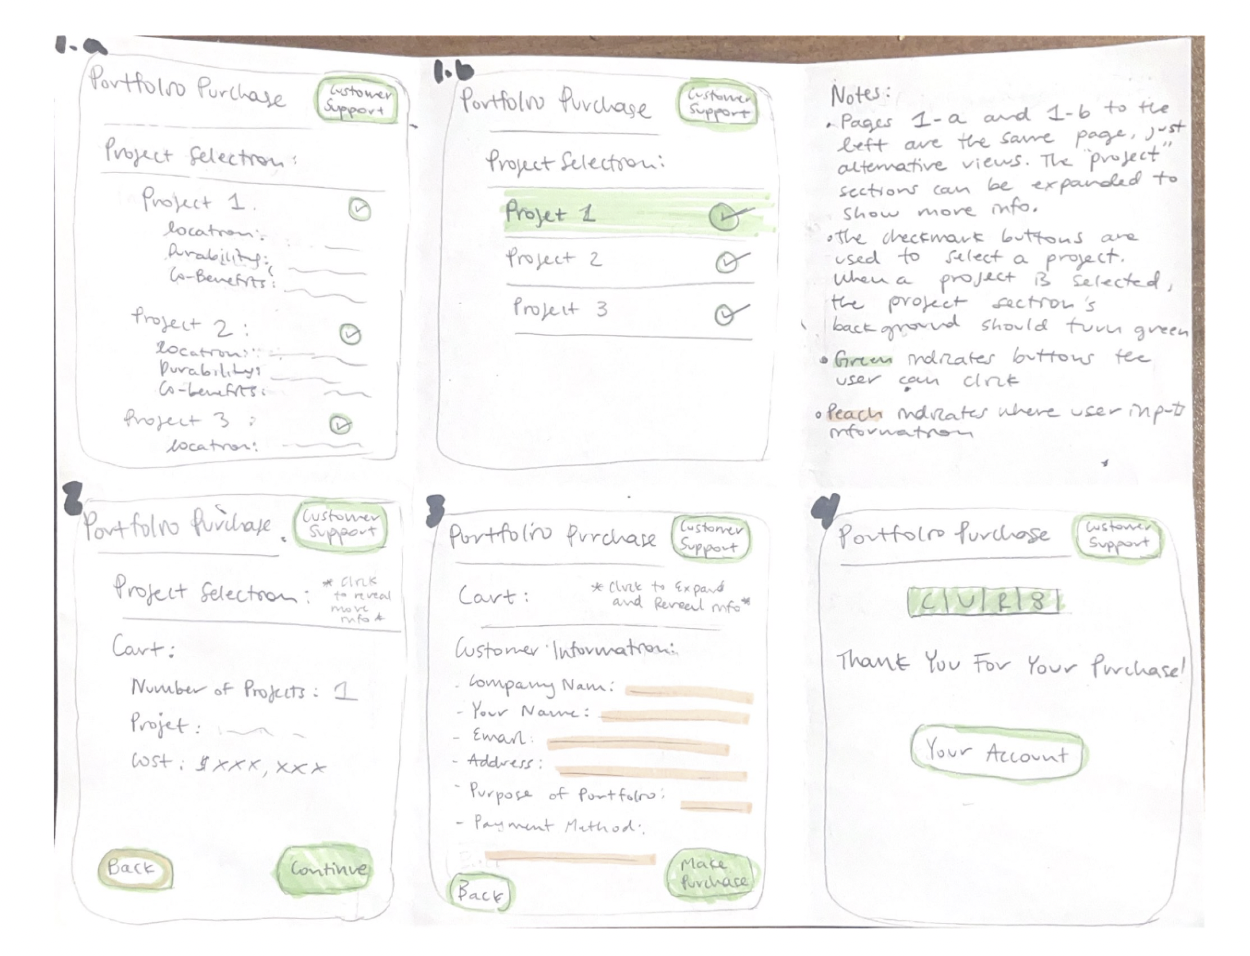 1.a
Portfolio Purchase
Customer
Support
Project Selection:
Project 1.
location:
Durability:
Co-Benefits:
Project 2:
location:
Durability:
Co-benefits:
Project 3:
location:
1.b
Portfolio Purchase
Customer
Support
Project Selection:
Projet 1
Project 2
Project 3
Notes:
• Pages 1-a and 1-b to the
left are the same page, just
alternative views. The "project"
sections can be expanded to
show more info.
• The checkmark buttons are
used to select a project.
When a project is selected,
the project section's
background should turn green
• Green indicates buttons the
user can click
• Peach indicates where user input
information
2
Portfolio Purchase.
Customer
Support
Project Selection:
* Click
to reveal
more
info *
Cart:
Number of Projects: 1
Projet:
Cost: $xxx,xxx
Back
Continue
3
Portfolio Purchase
Customer
Support
Cart:
* Click to Expand
and Reveal info *
Customer Information:
- Company Name:
- Your Name:
- Email:
- Address:
- Purpose of Portfolio:
- Payment Method:
Back
Make
Purchase
4
Portfolio Purchase
Customer
Support
C|U|R|8|
Thank You For Your Purchase!
Your Account